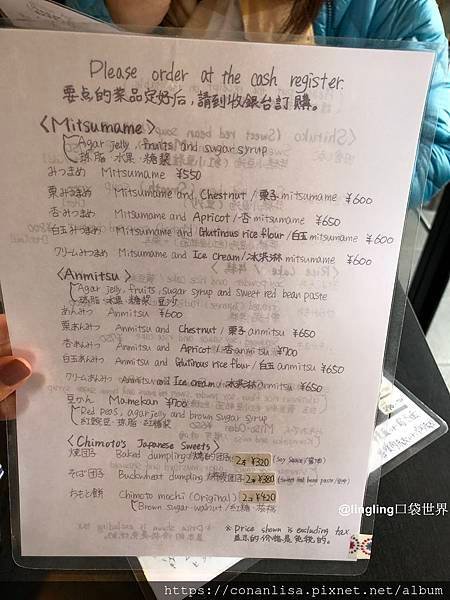 Please order at the cash register.
要点的菜品定好后,請到收銀台訂購。
<Mitsumame>
Agar jelly, fruits and sugar syrup
琼脂·水果·糖漿
みつまめ Mitsumame ¥550
栗みつまめ Mitsumame and Chestnut/栗子mitsumame ¥600
杏みつまめ Mitsumame and Apricot/杏mitsumame ¥650
白玉みつまめ Mitsumame and Glutinous rice flour/白玉mitsumame ¥600
クリームみつまめ Mitsumame and Ice cream/冰淇淋mitsumame ¥600
<Anmitsu>
Agar jelly, fruits, sugar syrup and sweet red bean paste
琼脂·水果·糖漿·豆沙
あんみつ Anmitsu ¥600
栗あんみつ Anmitsu and Chestnut/栗子anmitsu ¥650
杏あんみつ Anmitsu and Apricot/杏anmitsu ¥700
白玉あんみつ Anmitsu and Glutinous rice flour/白玉anmitsu ¥650
クリームあんみつ Anmitsu and Ice cream/冰淇淋anmitsu ¥650
豆かん Mamekan ¥700
Red peas, agar jelly and brown sugar syrup
紅豌豆·琼脂·红糖漿
<Chimoto's Japanese Sweets>
焼団子 Baked dumpling/烤的団子 2本 ¥320 (Soy Sauce/酱油)
そば団子 Buckwheat dumpling 2本 ¥380 (sweet red bean paste/豆沙)
ちもと餅 Chimoto mochi (Original) 2個 ¥420
Brown sugar·walnut/紅糖·核桃
* price shown is excluding tax
显示的价格是免税的。
@lingling口袋世界
https://conanlisa.pixnet.net/album